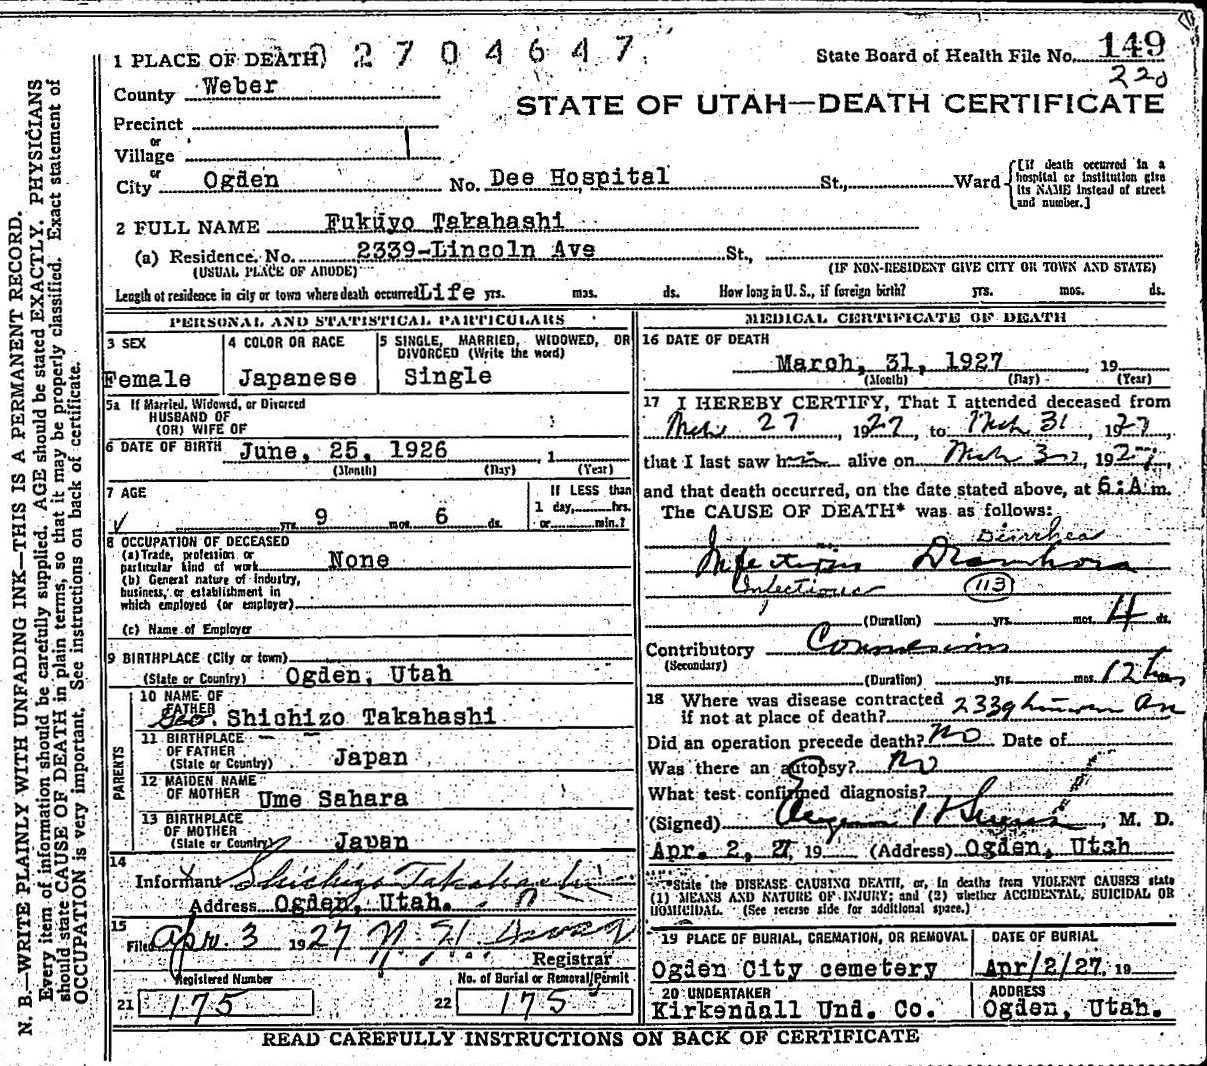 N. B.—WRITE PLAINLY WITH UNFADING INK—THIS IS A PERMANENT RECORD.
Every item of information should be carefully supplied. AGE should be stated EXACTLY. PHYSICIANS
should state CAUSE OF DEATH in plain terms, so that it may be properly classified. Exact statement of
OCCUPATION is very important. See instructions on back of certificate.
1 PLACE OF DEATH 2704647
State Board of Health File No. 149
220
County Weber
STATE OF UTAH—DEATH CERTIFICATE
Precinct
or
Village
or
City Ogden No. Dee Hospital St., Ward
[If death occurred in a
hospital or institution give
its NAME instead of street
and number.]
2 FULL NAME Fukuyo Takahashi
(a) Residence. No. 2339-Lincoln Ave St.,
(USUAL PLACE OF ABODE) (IF NON-RESIDENT GIVE CITY OR TOWN AND STATE)
Length of residence in city or town where death occurred Life yrs. mos. ds. How long in U. S., if foreign birth? yrs. mos. ds.
PERSONAL AND STATISTICAL PARTICULARS
3 SEX
Female
4 COLOR OR RACE
Japanese
5 SINGLE, MARRIED, WIDOWED, OR
DIVORCED (Write the word)
Single
5a If Married, Widowed, or Divorced
HUSBAND OF
(OR) WIFE OF
6 DATE OF BIRTH June, 25, 1926, 1
(Month) (Day) (Year)
7 AGE
yrs. 9 mos 6 ds.
If LESS than
1 day, hrs.
or min.?
8 OCCUPATION OF DECEASED
(a) Trade, profession or
particular kind of work None
(b) General nature of industry,
business, or establishment in
which employed (or employer)
(c) Name of Employer
9 BIRTHPLACE (City or town)
(State or Country) Ogden, Utah
PARENTS
10 NAME OF
FATHER
Geo. Shichizo Takahashi
11 BIRTHPLACE
OF FATHER
(State or Country) Japan
12 MAIDEN NAME
OF MOTHER Ume Sahara
13 BIRTHPLACE
OF MOTHER
(State or Country) Japan
14
Informant Shichizo Takahashi
Address Ogden, Utah.
15
Filed Apr. 3 1927
Registrar
Registered Number
21 175
No. of Burial or Removal Permit
22 175
MEDICAL CERTIFICATE OF DEATH
16 DATE OF DEATH
March, 31, 1927, 19
(Month) (Day) (Year)
17 I HEREBY CERTIFY, That I attended deceased from
Mch 27, 1927, to Mch 31, 1927,
that I last saw h alive on Mch 30, 1927,
and that death occurred, on the date stated above, at 6:A m.
The CAUSE OF DEATH* was as follows:
Diarrhea
Infectious Diarrhoea
Infectious 113
(Duration) yrs. mos. 4 ds.
Contributory Convulsions
(Secondary)
(Duration) yrs. mos. 12 hrs
18 Where was disease contracted
if not at place of death? 2339 Lincoln Ave
Did an operation precede death? No Date of
Was there an autopsy? No
What test confirmed diagnosis?
(Signed) , M. D.
Apr. 2, 27, 19 (Address) Ogden, Utah
*State the DISEASE CAUSING DEATH, or, in deaths from VIOLENT CAUSES state
(1) MEANS AND NATURE OF INJURY; and (2) whether ACCIDENTAL, SUICIDAL OR
HOMICIDAL. (See reverse side for additional space.)
19 PLACE OF BURIAL, CREMATION, OR REMOVAL
Ogden City cemetery
DATE OF BURIAL
Apr/2/27, 19
20 UNDERTAKER
Kirkendall Und. Co.
ADDRESS
Ogden, Utah.
READ CAREFULLY INSTRUCTIONS ON BACK OF CERTIFICATE